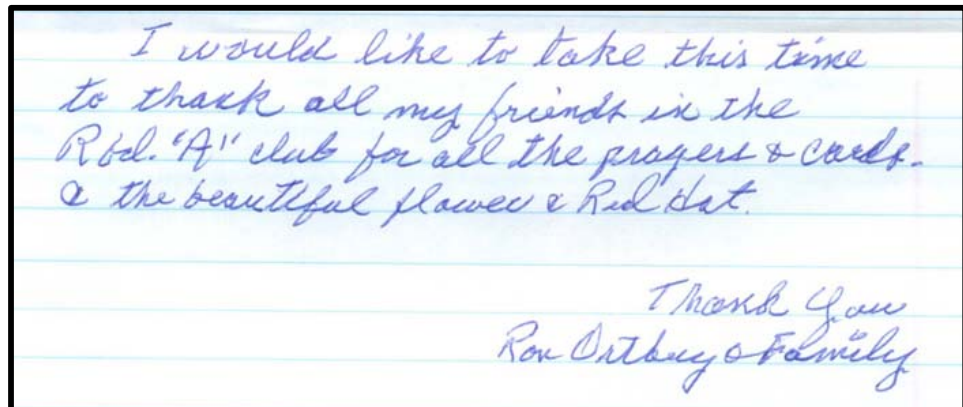 I would like to take this time
to thank all my friends in the
"A" club for all the prayers & cards.
& the beautiful flower & Red Hat.
Thank You
Ron & Family